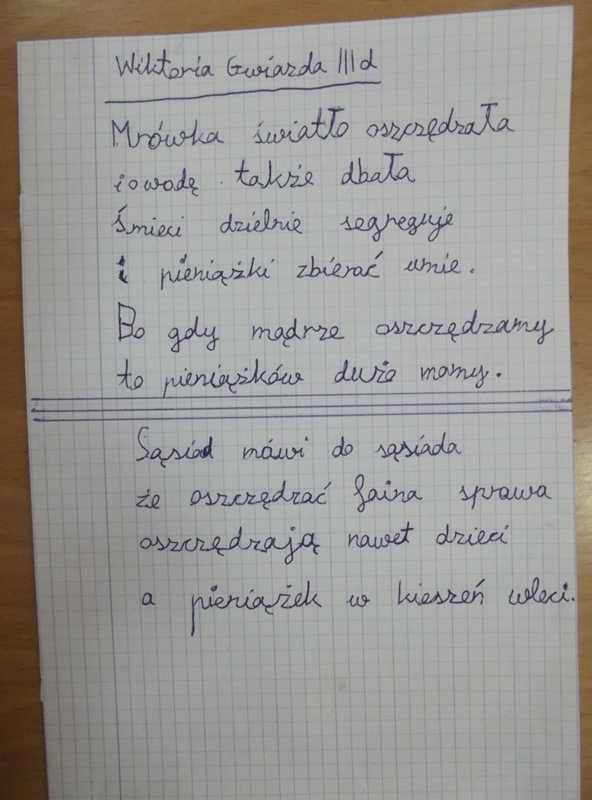 Wiktoria Gwiazda III d
Mrówka światło oszczędzała
i o wodę także dbała
Śmieci dzielnie segreguje
i pieniążki zbierać umie.
Bo gdy mądrze oszczędzamy
to pieniążków dużo mamy.
Sąsiad mówi do sąsiada
że oszczędzać fajna sprawa
oszczędzają nawet dzieci
a pieniążek w kieszeń wleci.